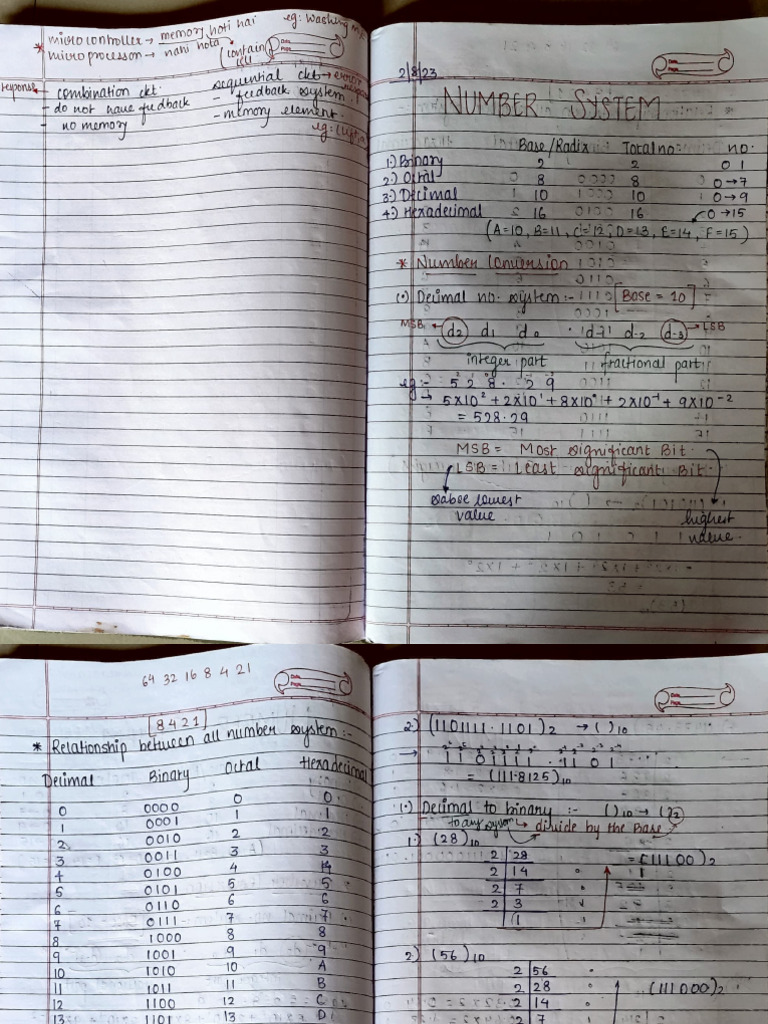 eg: washing
* microcontroller → memory hoti hai
microprocessor → nahi hota (contain
combination ckt.
- do not have feedback
- no memory
sequential ckt →
- feedback system
- memory element.
2/8/23
NUMBER SYSTEM
Base/Radix Total no: no.
1.) Binary 2 2 0 1
2.) Octal 8 8 0→7
3.) Decimal 10 10 0→9
4.) Hexadecimal 16 16 0→15
(A=10, B=11, C=12, D=13, E=14, F=15)
* Number Conversion
(•) Decimal no. system :- [Base = 10]
MSB ← d2 d1 d0 . d-1 d-2 d-3 → LSB
integer part fractional part
eg:- 5 2 8 . 2 9
→ 5×10² + 2×10¹ + 8×10⁰ + 2×10⁻¹ + 9×10⁻²
= 528.29
MSB = Most significant Bit.
LSB = Least significant Bit.
lowest
value
highest
value.
64 32 16 8 4 2 1
8 4 2 1
* Relationship between all number system :-
Decimal Binary Octal Hexadecimal
0 0000 0 0
1 0001 1 1
2 0010 2 2
3 0011 3 3
4 0100 4 4
5 0101 5 5
6 0110 6 6
7 0111 7 7
8 1000 8 8
9 1001 9 9
10 1010 10 A
11 1011 11 B
12 1100 12 C
13 1101 13 D
2.) (1101111.1101)₂ → ( )₁₀
→ 1 1 0 1 1 1 1 . 1 1 0 1
= (111.8125)₁₀
(•) Decimal to binary :- ( )₁₀ → ( )₂
to any system → divide by the Base
1.) (28)₁₀
2 28 = (11100)₂
2 14 0
2 7 0
2 3 1
1 1
2) (56)₁₀
2 56 0
2 28 0 (111000)₂
2 14 0
2 7